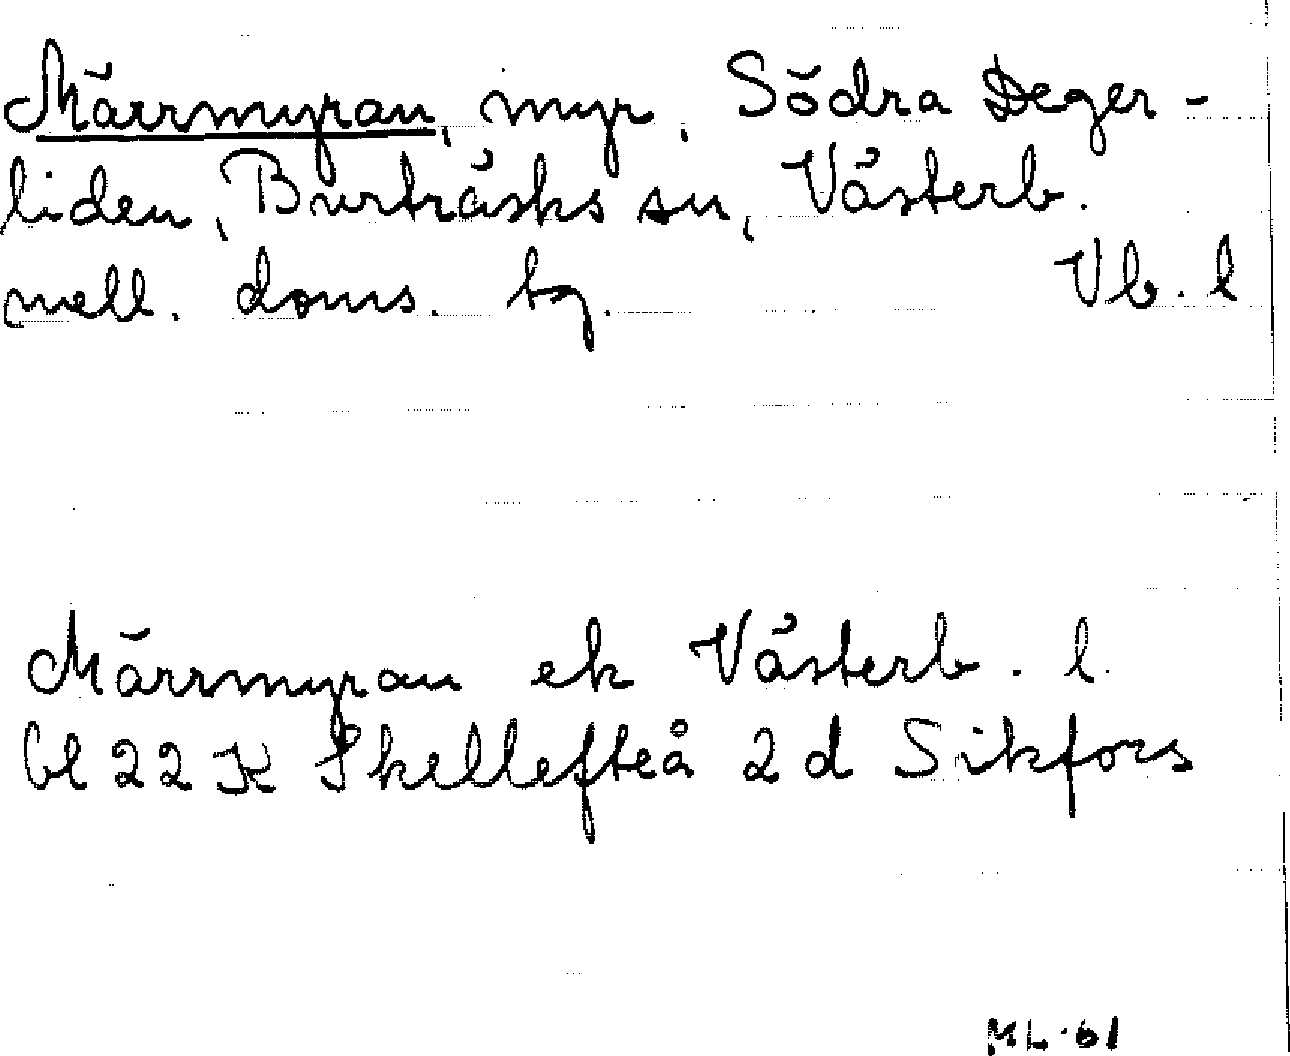 Märrmyran, myr, Södra Deger-
liden, Burträsks sn, Västerb.
mell. doms. bg. Vb. l
Märrmyran ek Västerb. l.
bl 22 K Skellefteå 2 d Sikfors
ML·61